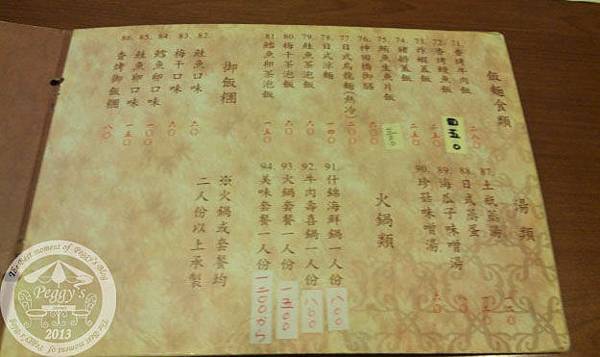 飯麵食類
71. 香烤牛肉飯 二八〇
72. 香烤鰻魚飯 四五〇
73. 炸蝦蓋飯 二五〇
74. 豬排蓋飯
75. 鮪魚生魚片飯
76. 神田橋御膳 六〇〇
77. 日式烏龍麵(熱冷) 二〇〇
78. 日式涼麵 一四〇
79. 鮭魚茶泡飯
80. 梅干茶泡飯
81. 鱈魚卵茶泡飯 一五〇
御飯糰
82. 鮭魚口味 六〇
83. 梅干口味 六〇
84. 鱈魚卵口味 一〇〇
85. 鮭魚卵口味 一五〇
86. 香烤御飯糰 八〇
湯類
87. 土瓶蒸湯
88. 日式蒸蛋
89. 海瓜子味噌湯
90. 珍菇味噌湯 六〇
火鍋類
91. 什錦海鮮鍋一人份 八〇〇
92. 牛肉壽喜鍋一人份 八〇〇
93. 火鍋套餐一人份 一五〇〇
94. 美味套餐一人份
※火鍋或套餐均
二人份以上承製
The Best moment of Peggy's Blog
Peggy's
2013